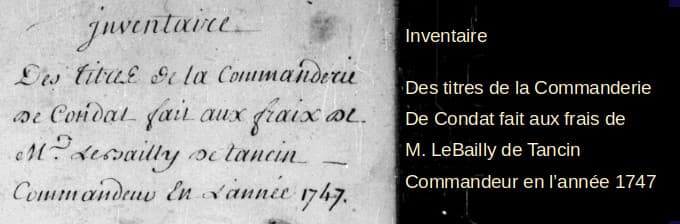 inventaire
Des titres de la Commanderie
de Condat fait aux fraix de
M.r Lebailly de tancin
Commandeur En L'année 1747.
Inventaire
Des titres de la Commanderie
De Condat fait aux frais de
M. LeBailly de Tancin
Commandeur en l’année 1747